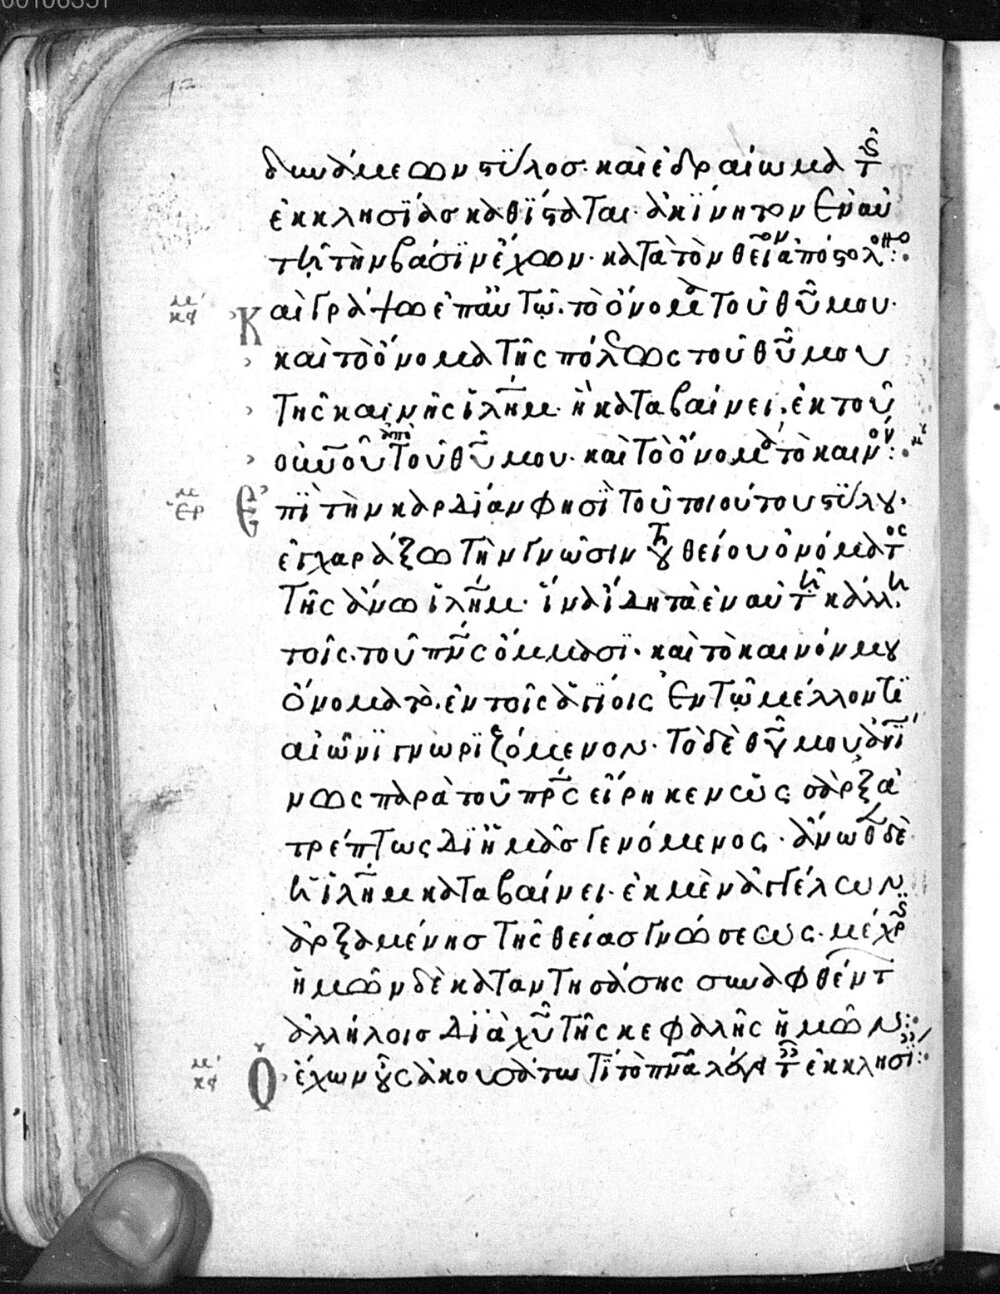 00106357
δυνάμεων στύλοσ· καὶ ἑδραίωμα τ
ἐκκλησΐασ καθΐσταται· ἀκίνητον ἐν αὐ
τῆ τὴν βάσϊν ἔχων· κατὰ τὸν θεῖον ἀπόστολον:·
Καὶ γράψω ἐπ αὐτῶ· τὸ ὄνομα τοῦ θῦ μου·
καὶ τὸ ὄνομα τῆς πόλεως τοῦ θῦ μου
τῆς καινῆς ἰλῆμ· ἡ καταβαίνει· ἐκ τοῦ
οὐνοῦ ἀπὸ τοῦ θῦ μου· καὶ τὸ ὄνομα τὸ καινόν:·
Ἐπῒ τὴν καρδΐαν φησῒ τοῦ τοιούτου στύλου·
ἐγχαράξω τὴν γνῶσιν τοῦ θείου ὀνόματος
τῆς ἄνω ἰλῆμ· ἵνα ἴδη τὰ ἐν αὐτῆ κάλλη
τοῖς τοῦ πνς ὄμμασϊ· καὶ τὸ καινόν μου
ὄνομα τὸ ἐν τοῖς ἁγΐοις ἐν τῶ μέλλοντϊ
αἰῶνϊ γνωρϊζόμενον· Τὸ δὲ θῦ μου ἀνΐ
νως παρὰ τοῦ πρς εἴρηκεν ὡς σὰρξ ἀ
τρέπτως δϊ ἡμᾶσ γενόμενος· ἄνωθ δὲ
ἡ ἰλῆμ καταβαίνει· ἐκ μὲν ἀγγέλων
ἀρξαμένησ τῆς θείασ γνώσεως· μέχρϊς
ἡμῶν δὲ καταντησάσης συναφθέντ
ἀλλήλοισ δϊὰ χῦ τῆς κεφαλῆς ἡμῶν:·
Ὁ ἔχων οὖς ἀκουσάτω τί τὸ πνα λέγει τ ἐκκλησΐ:·